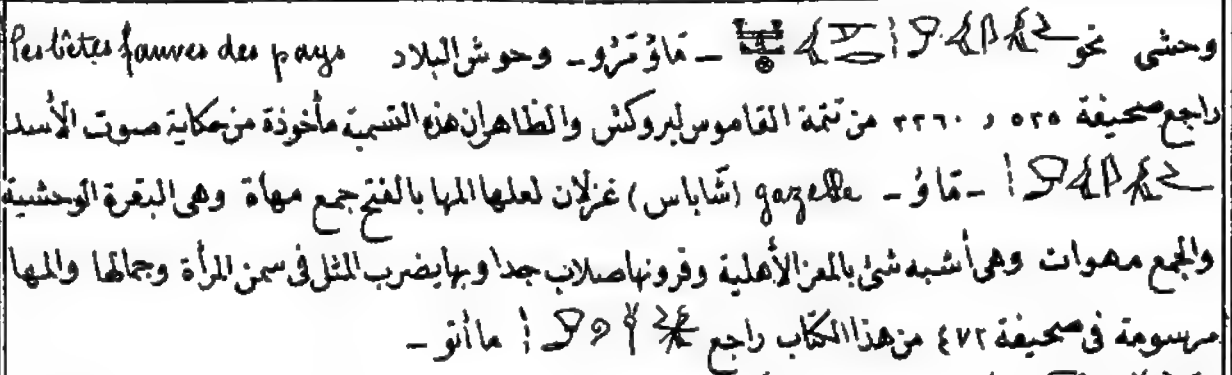 وحشى نحو – مَاؤُ تَرُو – وحوش البلاد les bêtes fauves des pays
راجع صحيفة ٥٢٥ و ٢٢٦٠ من تتمة القاموس لبروكش والظاهر ان هذه التسمية مأخوذة من حكاية صوت الأسد
– مَاوُ – gazelle (شاباس) غزلان لعلها المها بالفتح جمع مهاة وهى البقرة الوحشية
والجمع مهوات وهى أشبه شئ بالمعز الأهلية وقرونها صلاب جدا وبها يضرب المثل فى سمن المرأة وجمالها والمها
مرسومة فى صحيفة ٤٧٢ من هذا الكتاب راجع ماأتو –